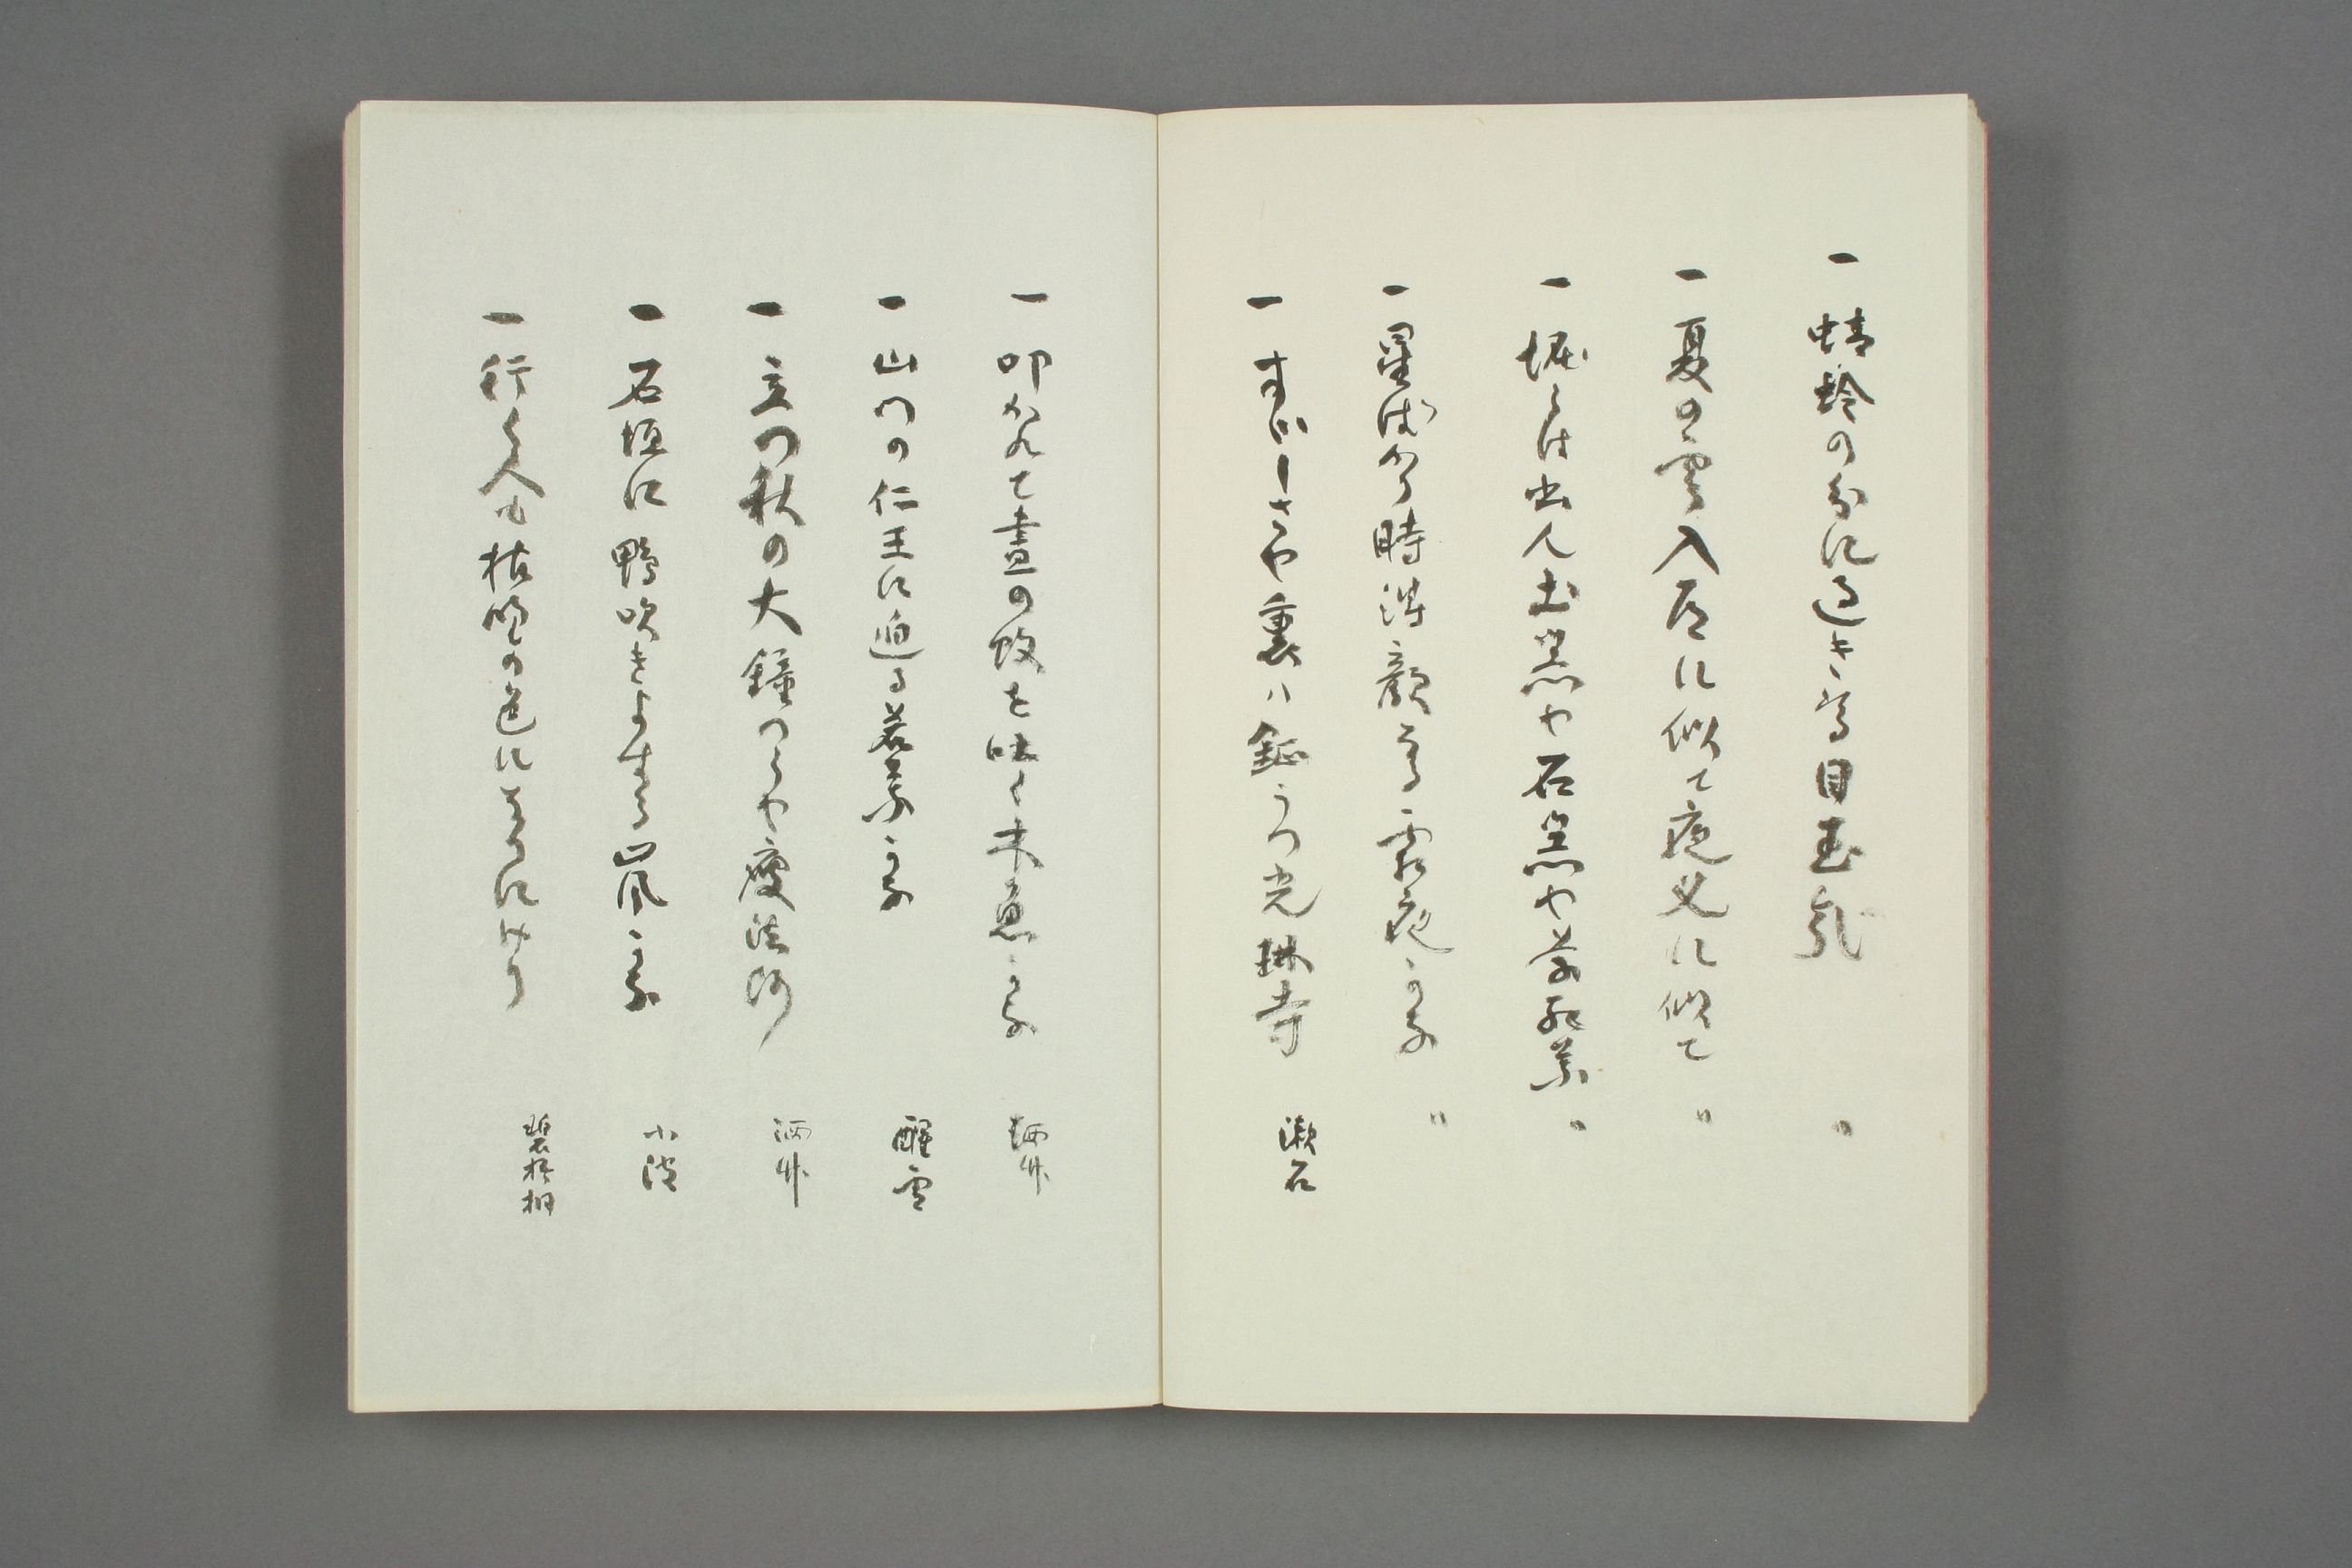 一 蜻蛉の分に過きる目玉哉 〃
一 夏の雲入道に似て夜叉に似て 〃
一 堀らは出ん土器や石器や若葉 〃
一 星消ゆる時得顔なる露夜かな 〃
一 すゝしさや裏ハ鉦うつ光琳寺 漱石
一 叩かれて昼の蚊を吐く木魚かな 漱石
一 山門の仁王に迫る若葉かな 醒雪
一 立つ秋の大鐘つくや痩法師 酒竹
一 石垣に鴨吹きよする嵐かな 小波
一 行く人も枯野の色になりにけり 碧梧桐